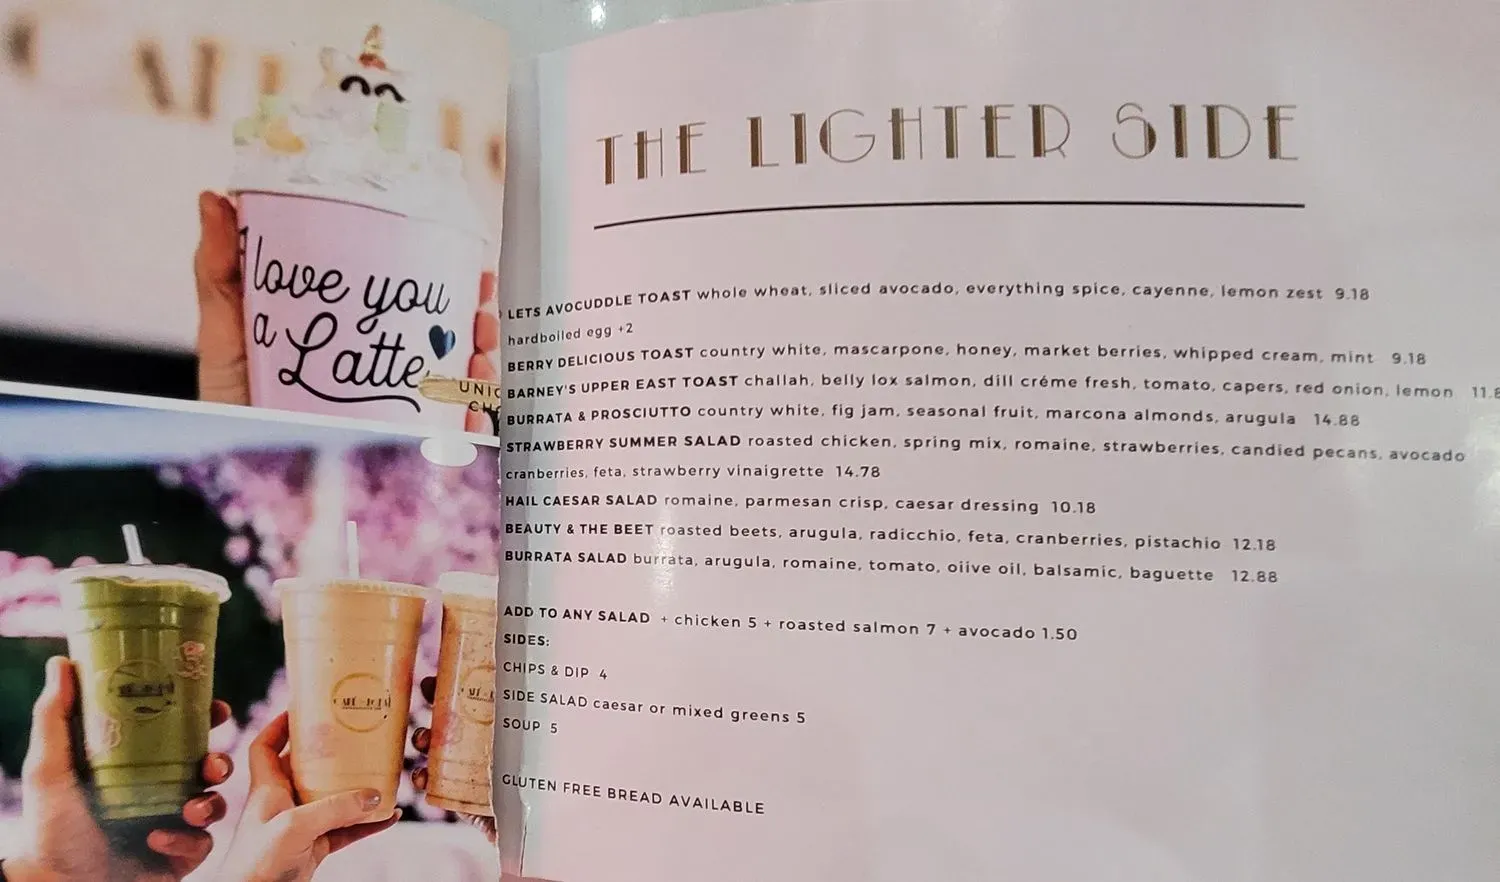 I love you
a Latte
UNIC
THE LIGHTER SIDE
LETS AVOCUDDLE TOAST whole wheat, sliced avocado, everything spice, cayenne, lemon zest 9.18
hardboiled egg +2
BERRY DELICIOUS TOAST country white, mascarpone, honey, market berries, whipped cream, mint 9.18
BARNEY'S UPPER EAST TOAST challah, belly lox salmon, dill créme fresh, tomato, capers, red onion, lemon 11.8
BURRATA & PROSCIUTTO country white, fig jam, seasonal fruit, marcona almonds, arugula 14.88
STRAWBERRY SUMMER SALAD roasted chicken, spring mix, romaine, strawberries, candied pecans, avocado
cranberries, feta, strawberry vinaigrette 14.78
HAIL CAESAR SALAD romaine, parmesan crisp, caesar dressing 10.18
BEAUTY & THE BEET roasted beets, arugula, radicchio, feta, cranberries, pistachio 12.18
BURRATA SALAD burrata, arugula, romaine, tomato, oiive oil, balsamic, baguette 12.88
ADD TO ANY SALAD + chicken 5 + roasted salmon 7 + avocado 1.50
SIDES:
CHIPS & DIP 4
SIDE SALAD caesar or mixed greens 5
SOUP 5
GLUTEN FREE BREAD AVAILABLE